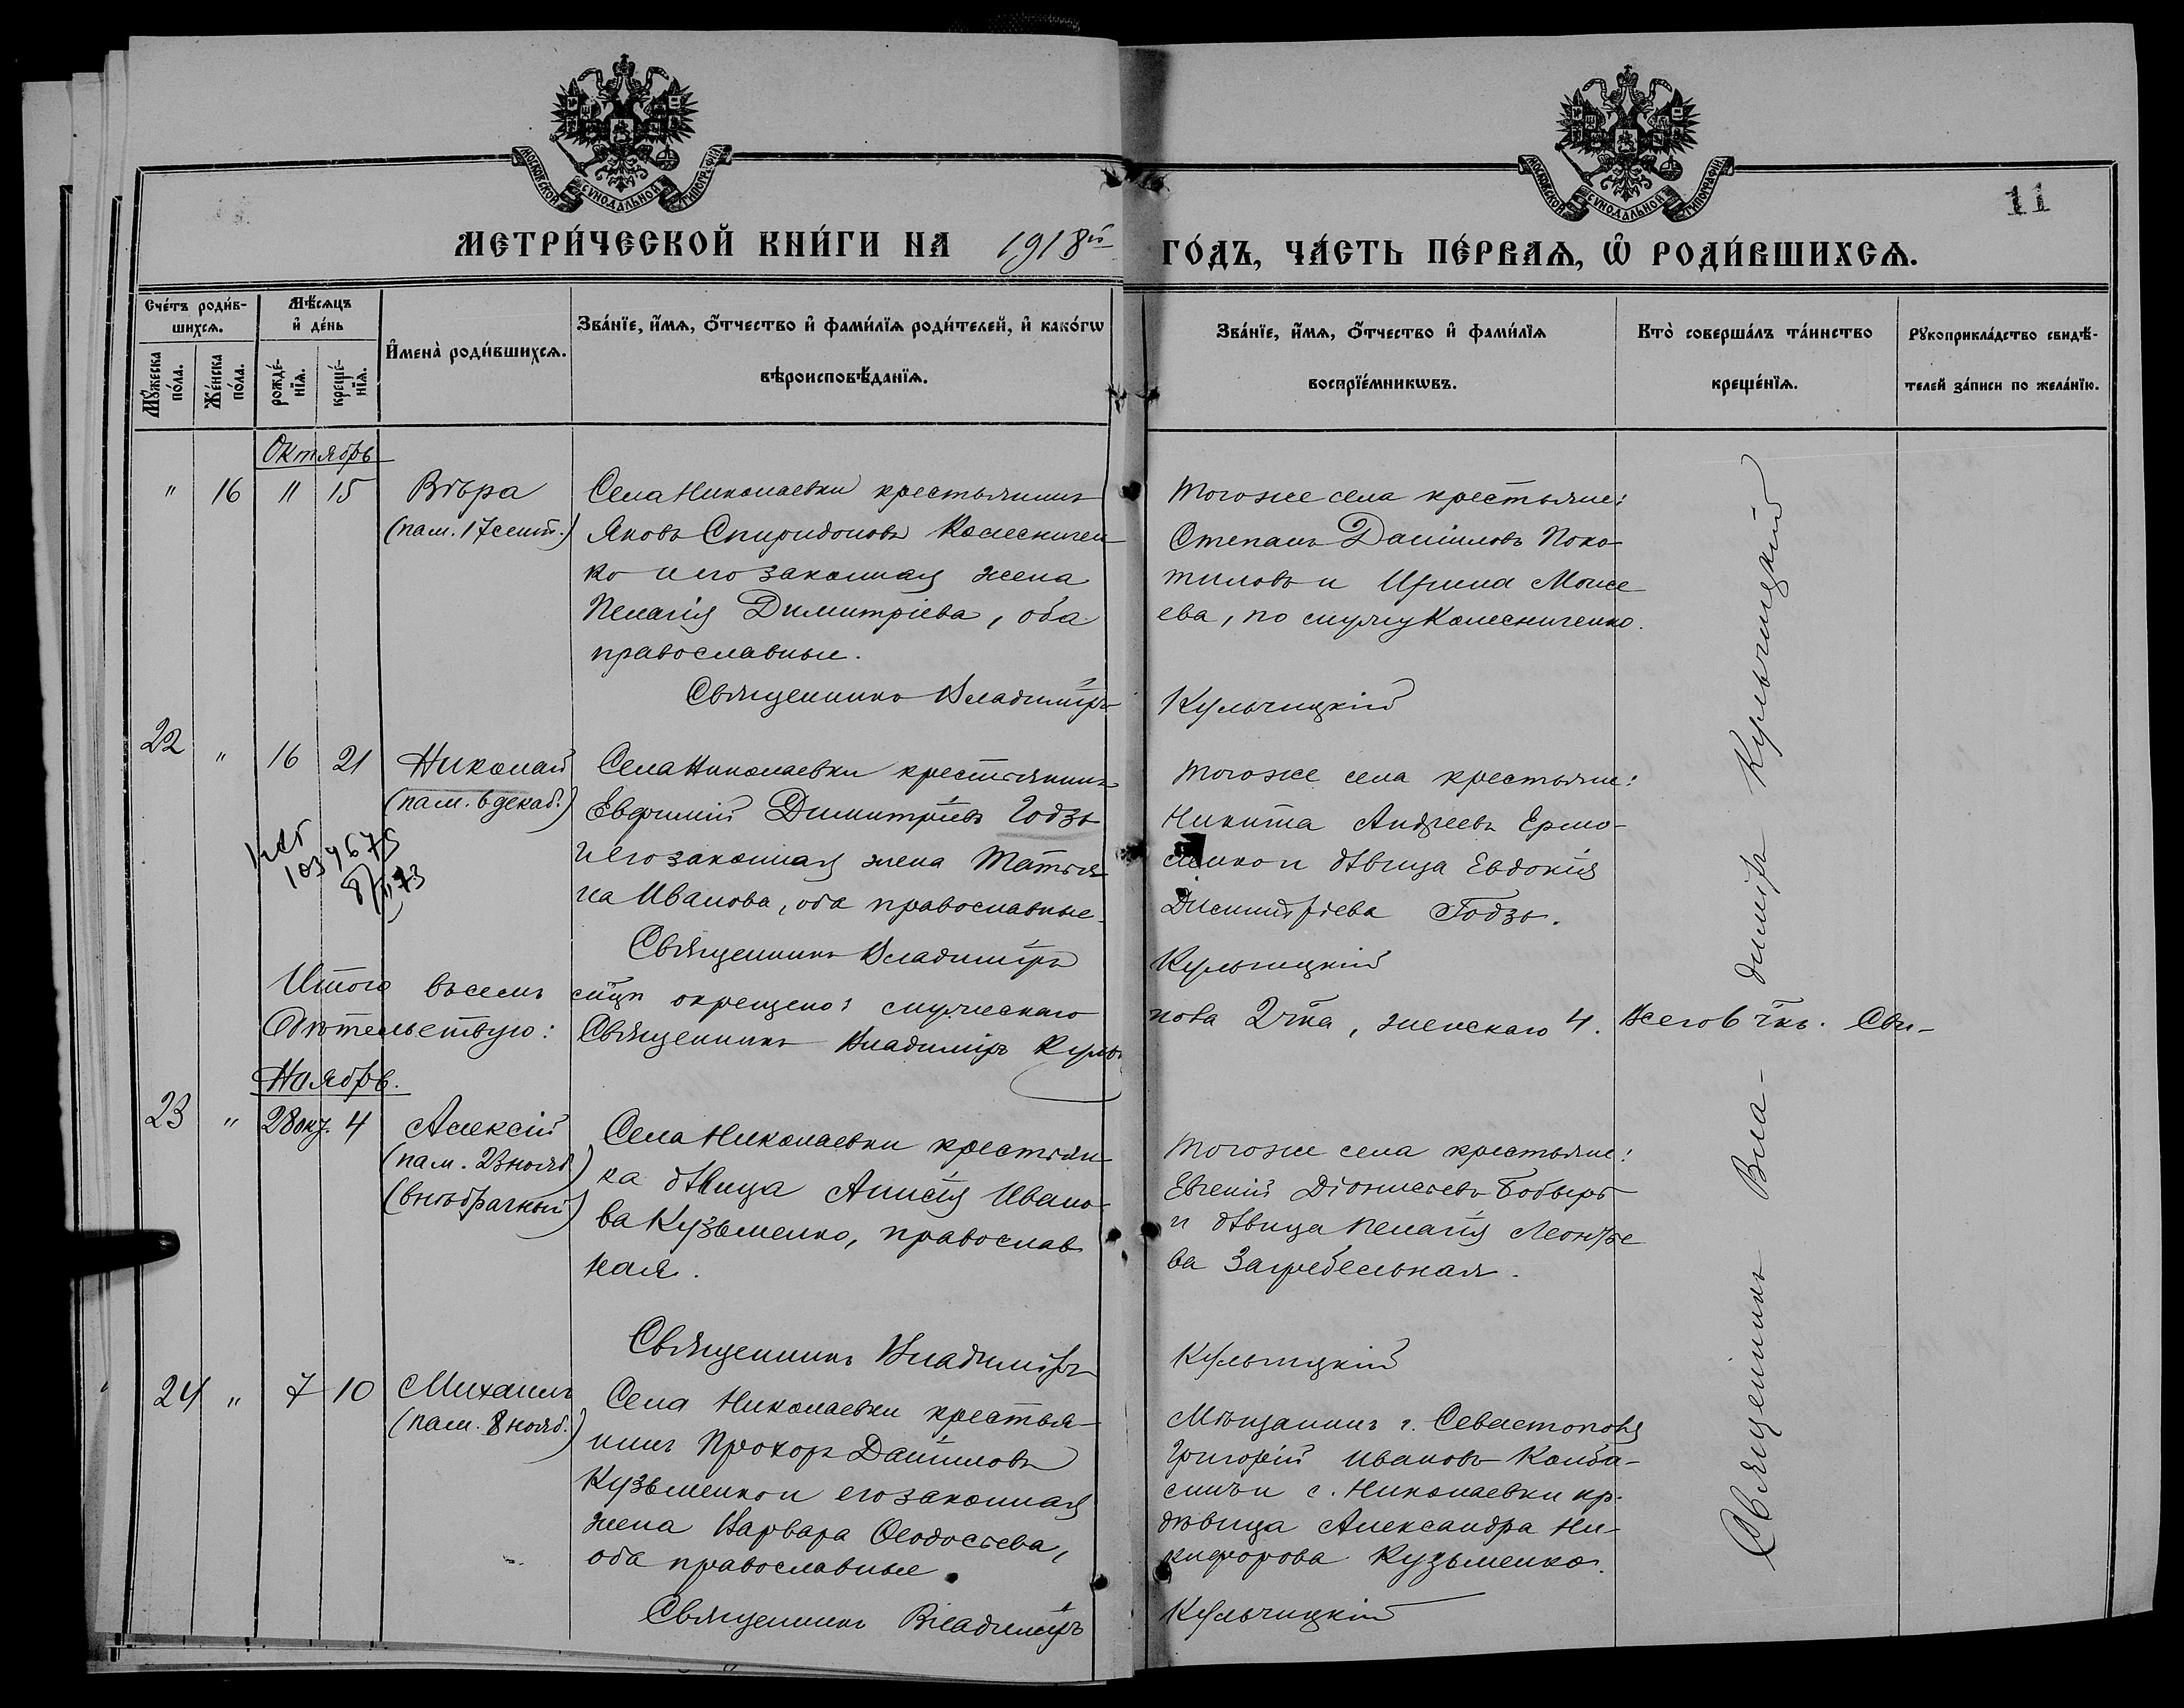 МОСКОВСКОЙ СѴНОДАЛЬНОЙ ТИПОГРАФІИ
МОСКОВСКОЙ СѴНОДАЛЬНОЙ ТИПОГРАФІИ
11
МЕТРИ́ЧЕСКОЙ КНИ́ГИ НА 1918й ГО́ДЪ, ЧА́СТЬ ПЕ́РВАѦ, Ѡ҆ РОДИ́ВШИХСѦ.
Сче́тъ роди́в-
шихсѧ.
Мѣ́сѧцъ
и҆ де́нь
Мꙋ́жеска
по́ла.
Же́нска
по́ла.
рожде́-
нїѧ.
креще́-
нїѧ.
И҆мена̀ роди́вшихсѧ.
Зва́нїе, и҆́мѧ, ѻ҆́тчество и҆ фами́лїѧ роди́телей, и҆ како́гѡ
вѣроисповѣ́данїѧ.
Зва́нїе, и҆́мѧ, ѻ҆́тчество и҆ фами́лїѧ
воспрїе́мникѡвъ.
Кто̀ соверша́лъ та́инство
креще́нїѧ.
Рꙋкоприкла́дство свидѣ́-
телей за́писи по жела́нїю.
Октябрь
" 16 11 15 Вѣра
(пам. 17 сент.)
Села Николаевки крестьянинъ
Яковъ Спиридоновъ Колесничен-
ко и его законная жена
Пелагія Димитріева, оба
православные.
Священникъ Владиміръ
Тогоже села крестьяне:
Степанъ Даніиловъ Поко-
тиловъ и Ирина Моисе
ева, по мужу Колесниченко.
Кульчицкій
22 " 16 21 Николай
(пам. 6 декаб.)
1034675
8/II 73
Села Николаевки крестьянинъ
Евфимій Димитріевъ Годзь
и его законная жена Татья-
на Иванова, оба православные.
Священникъ Владиміръ
Тогоже села крестьяне:
Никита Андреевъ Ермо-
ленко и дѣвица Евдокія
Димитріева Годзь.
Кульчицкій
Итого въ семъ м-цѣ окрещено: мужескаго пола 2 чка, женскаго 4. Всего 6 чкъ. Сви-
дѣтельствую: Священникъ Владиміръ Кульч
Ноябрь.
23 " 28 окт. 4 Алексій
(пам. 23 нояб.)
(внѣбрачный)
Села Николаевки крестьян-
ка дѣвица Анисія Ивано-
ва Кузьменко, православ
ная.
Священникъ Владиміръ
Тогоже села крестьяне:
Евгеній Діонисіевъ Бобырь
и дѣвица Пелагія Леонтье
ва Загребельная.
Кульчицкій
24 " 7 10 Михаилъ
(пам. 8 нояб.)
Села Николаевки крестья-
нинъ Прохоръ Даніиловъ
Кузьменко и его законная
жена Варвара Ѳеодосіева,
оба православные.
Священникъ Владиміръ
Мѣщанинъ г. Севастополя
Григорій Ивановъ Колба-
синъ и с. Николаевки кр.
дѣвица Александра Ни-
кифорова Кузьменко.
Кульчицкій
Священникъ Вла-димиръ Кульчицкій